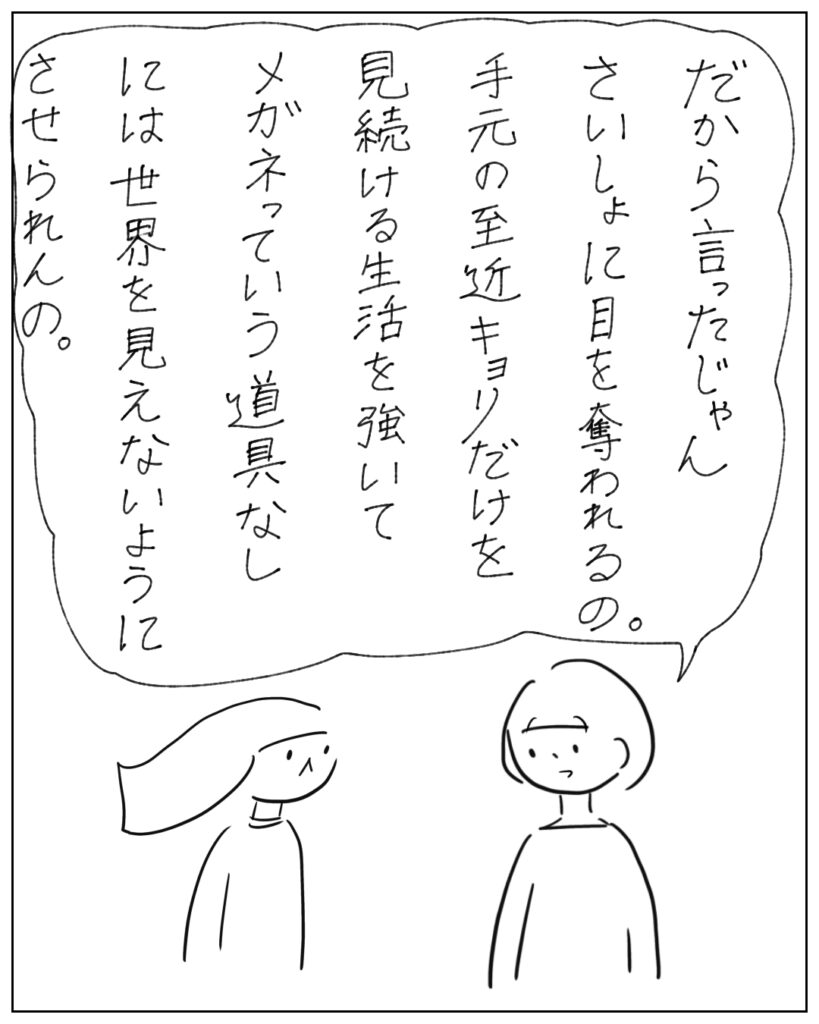 だから言ったじゃん
さいしょに目を奪われるの。
手元の至近キョリだけを
見続ける生活を強いて
メガネっていう道具なし
には世界を見えないように
させられんの。